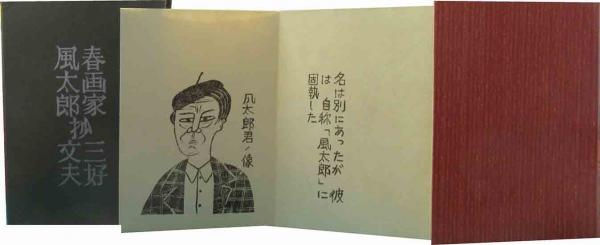 春画家 三好
風太郎抄 文夫
风太郎君ノ像
名は別にあったが 彼
は 自称「風太郎」に
固執した